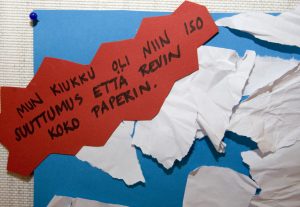 MUN KIUKKU OLI NIIN ISO
SUUTTUMUS ETTÄ REVIN
KOKO PAPERIN.